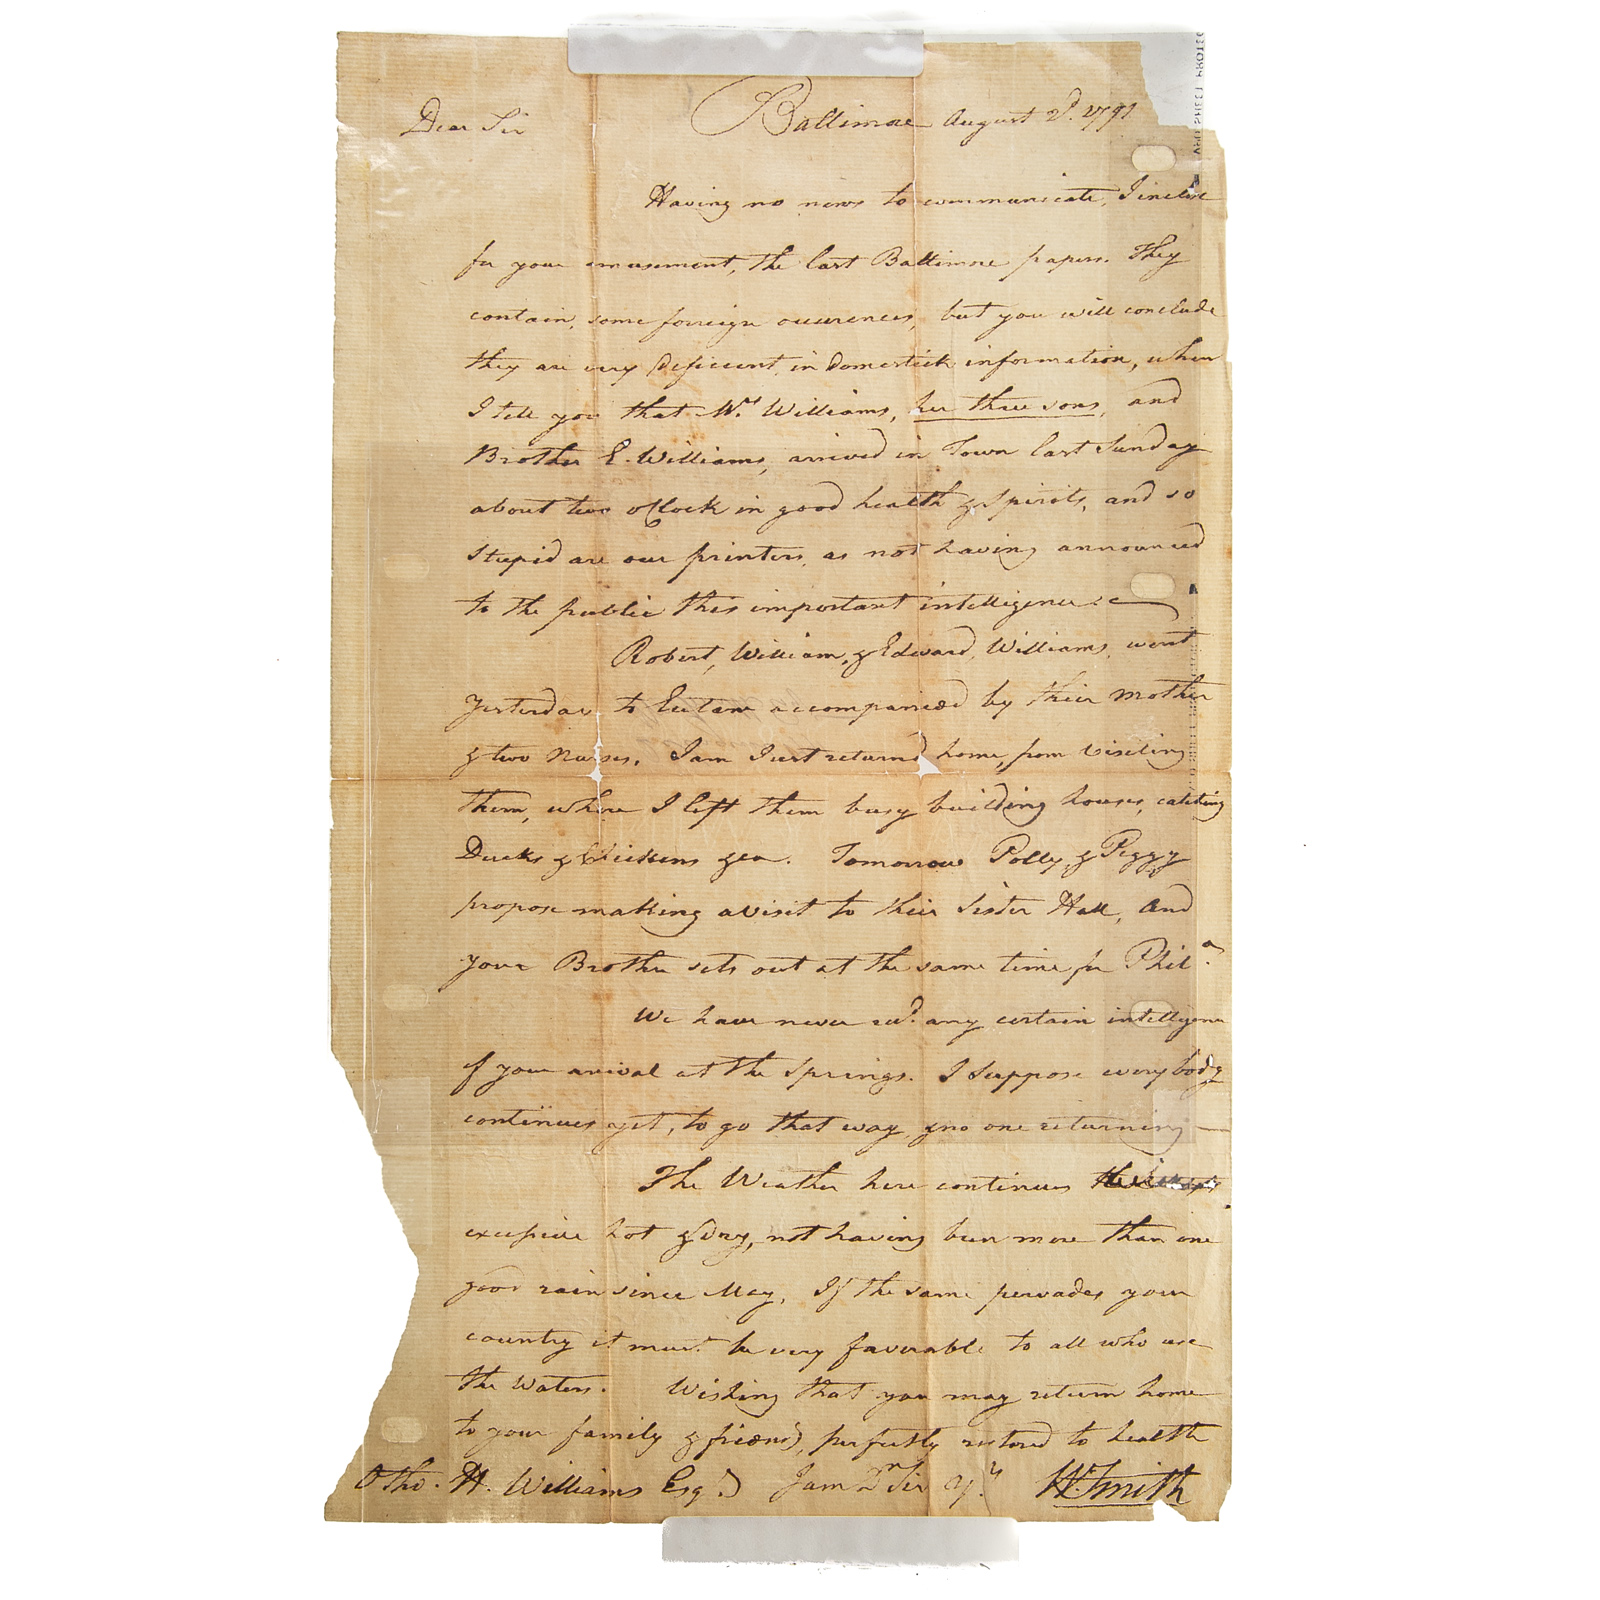 Baltimore August 2d. 1791
Dear Sir
Having no news to communicate, I inclose
for your amusement, the last Baltimore papers. They
contain, some forreign occurences, but you will conclude
they are very deficient in domestick information, when
I tell you that Mrs Williams, her three sons, and
Brother E. Williams, arrived in Town last Sunday
about two oClock in good health & Spirits, and so
Stupid are our printers, as not having announced
to the public this important intelligence.
Robert, William, & Edward, Williams, went
Yesterday to Eutaw accompanied by their mother
& two Nurses. I am Just returnd home, from Visiting
them, where I left them busy building houses, catching
Ducks & Chickens &ca. Tomorrow Polly, & Peggy
propose making a visit to their Sister Hall, and
your Brother sets out at the same time for Phila.
We have never recd. any certain intelligence
of your arrival at the Springs. I Suppose every body
continues yet, to go that way, & no one returning —
The Weather here continues
excessive hot & dry, not having been more than one
good rain since May, If the same pervades your
country it must be very favorable to all who use
the Waters. Wishing that you may return home
to your family & friends, perfectly restored to health
Otho. H. Williams Esqr. I am Dr Sir Yr. Wm Smith